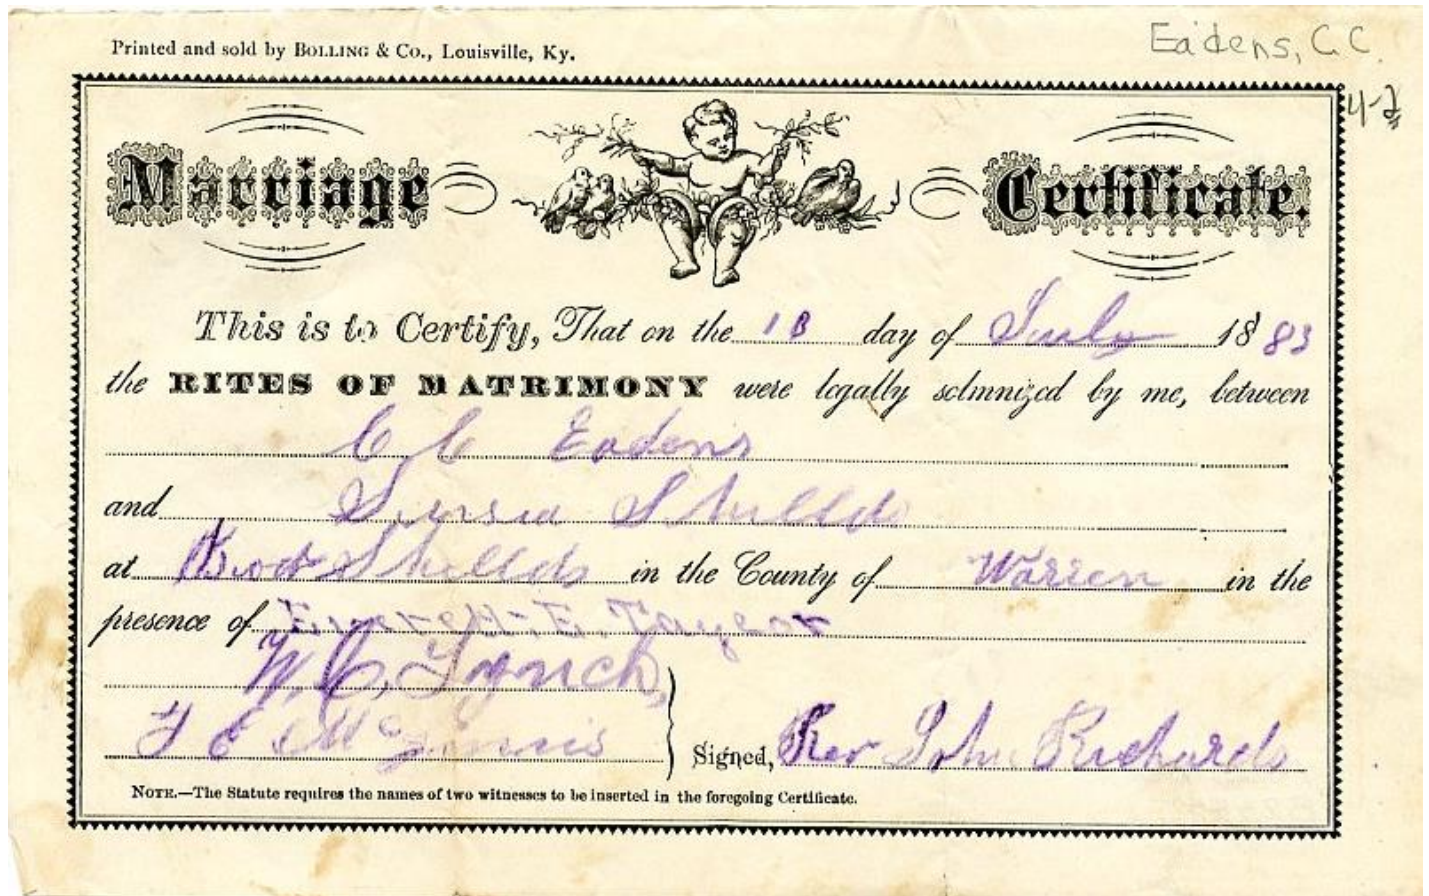 Printed and sold by BOLLING & CO., Louisville, Ky.
Eadens, C.C.
4-2
Marriage Certificate.
This is to Certify, That on the 18 day of July 1883
the RITES OF MATRIMONY were legally solmnized by me, between
C, C Eadens
and Shellds
at Shellds in the County of Warren in the
presence of
W. C. Lynch,
J E McGinnis
Signed, Rev John Richards
NOTE.—The Statute requires the names of two witnesses to be inserted in the foregoing Certificate.